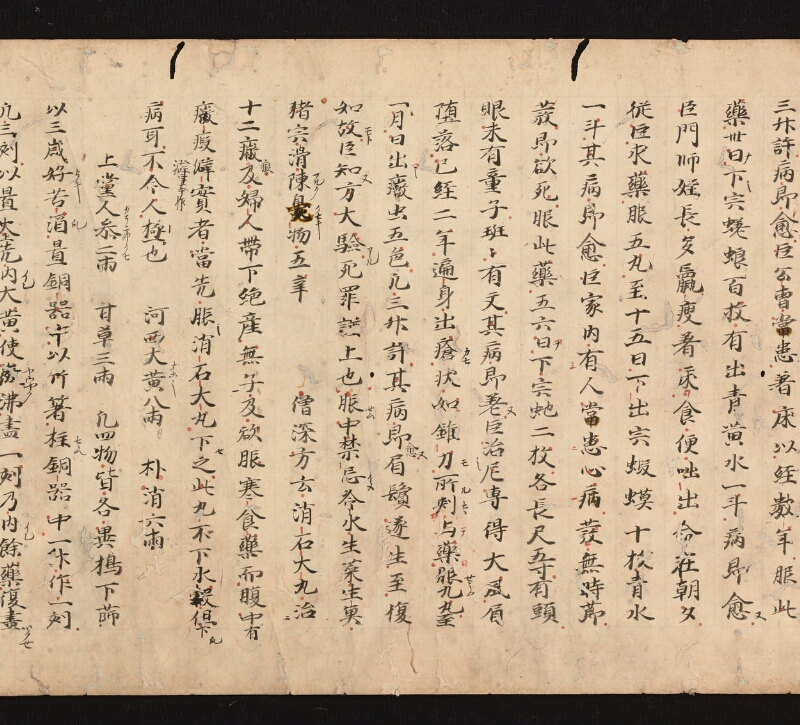 三升許病即愈臣公曹當患著床以經數年服此
藥卅日下宍蜣蜋百枚有出青黃水一斗病即愈
臣門師姪長矣羸瘦著床食便咄出命在朝夕
從臣求藥服五丸至十五日下出宍蝦蟆十枚青水
一斗其病即愈臣家內有人當患心病發無時節
發即欲死服此藥五六日下宍虵二枚各長尺五寸有頭
眼末有童子斑々有文其病即差臣治尼專得大風眉
墮落已經二年遍身出瘡狀如錐刀所刺与藥服九丸至
一月日出癥虫五色凡三升許其病即眉鬢遂生至復
如故臣知方大驗死罪謹上也服中禁忌冷水生菜生菓
猪宍滑陳臭物五辛
僧深方云消石大丸治
十二癥及婦人帶下絕產無子及欲服寒食藥而腹中有
癥瘕癖實者當先服消石大丸下之此丸不下水穀但下
病耳不令人極也 河西大黃八兩 朴消六兩
上堂人參二兩 甘草三兩 凡四物皆各異搗下篩
以三歲好苦酒置銅器中以竹箸柱銅器中一升作一刻
凡三刻以置火先內大黃使沸盡一刻乃內餘藥復盡